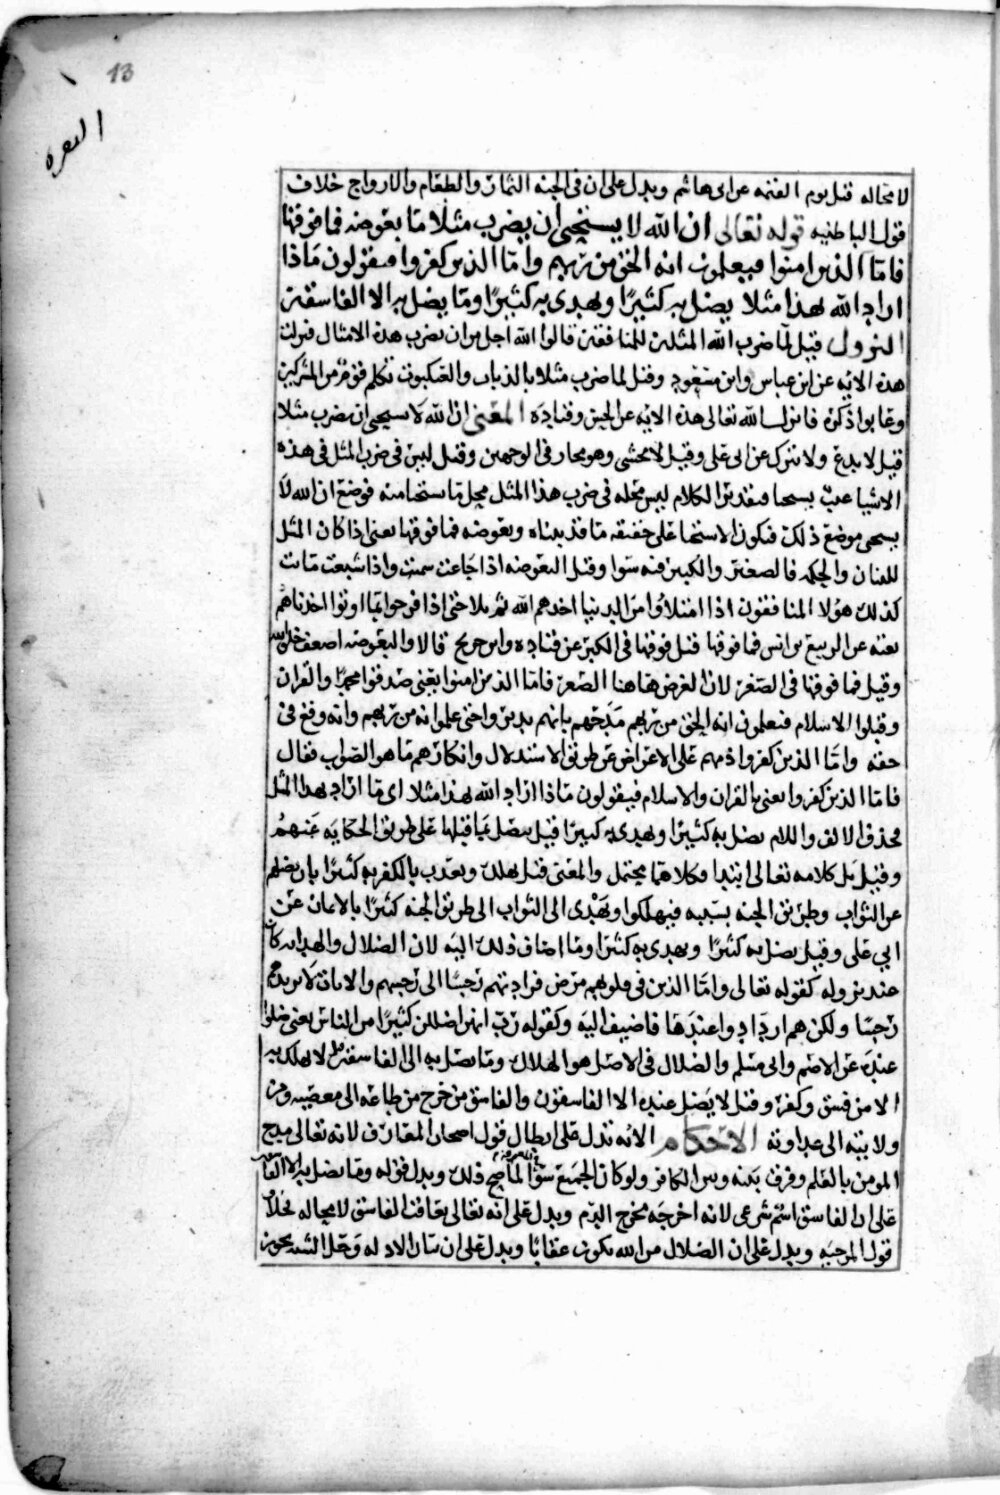 13
البقره
لا محاله قبل يوم القيمه عن ابي هاشم ويدل على ان في الجنه الثمار والطعام والازواج خلاف
قول الباطنيه قوله تعالى ان الله لا يستحيي ان يضرب مثلا ما بعوضه فما فوقها
فاما الذين امنوا فيعلمون انه الحق من ربهم واما الذين كفروا فيقولون ماذا
اراد الله بهذا مثلا يضل به كثيرًا ويهدي به كثيرًا وما يضل به الا الفاسقين
النزول قيل لما ضرب الله المثلين للمنافقين قالوا الله اجل من ان يضرب هذه الامثال فنزلت
هذه الايه عن ابن عباس وابن مسعود وقيل لما ضرب مثلا بالذباب والعنكبوت تكلم قوم من المشركين
وعابوا ذكره فانزل الله تعالى هذه الايه عن الحسن وقتاده المعنى ان الله لا يستحيي ان يضرب مثلا
قيل لا يدع ولا يترك عن ابي علي وقيل لا يخشى وهو مجاز في الوجهين وقيل ليس في ضرب المثل في هذه
الاشيا عيب يستحيا فتقدير الكلام ليس محله في ضرب هذا المثل محل ما يستحيا منه فوضع ان الله لا
يستحيي موضع ذلك فيكون الاستحيا على حقيقه ما قد بيناه وبعوضه فما فوقها يعني اذا كان المثل
للبيان والحكمه فالصغير والكبير فيه سوا وقيل البعوضه اذا جاعت سمنت واذا شبعت ماتت
كذلك هولا المنافقون اذا امتلأوا من الدنيا اخذهم الله ثم تلا حتى اذا فرحوا بما اوتوا اخذناهم
بغته عن الربيع بن انس فما فوقها قيل فوقها في الكبر عن قتاده وابن جريج قالا والبعوضه اضعف خلق الله
وقيل فما فوقها في الصغر لان الغرض هاهنا الصغر فاما الذين امنوا يعني صدقوا محمدًا والقران
وقبلوا الاسلام فيعلمون انه الحق من ربهم مدحهم بانهم تدبروا حتى علموا انه من ربهم وانه وقع في
حقه واما الذين كفروا ذمهم على الاعراض عن طريق الاستدلال وانكارهم ما هو الصواب فقال
فاما الذين كفروا يعني بالقران والاسلام فيقولون ماذا اراد الله بهذا مثلا اي ما اراد بهذا المثل
فحذف الالف واللام يضل به كثيرًا ويهدي به كثيرًا قيل يتصل بما قبلها على طريق الحكايه عنهم
وقيل بل كلامه تعالى ابتدا وكلاهما يحتمل والمعنى قيل يهلك ويعذب بالكفر به كثيرًا بان يضلهم
عن الثواب وطريق الجنه بسببه فيهلكوا ويهدي الى الثواب الى طريق الجنه كثيرًا بالايمان عن
ابي علي وقيل يضل به كثيرًا ويهدي به كثيرًا وما اضاف ذلك اليه لان الضلال والهدايه كان
عند نزوله كقوله تعالى واما الذين في قلوبهم مرض فزادتهم رجسًا الى رجسهم والايات لا تزيدهم
رجسًا ولكن هم ازدادوا عندها فاضيف اليه وكقوله رب انهن اضللن كثيرًا من الناس يعني ضلوا
عنده عن الاصم وابي مسلم والضلال في الاصل هو الهلاك وما يضل به الى الفاسقين لا يهلك به
الا من فسق وكفر وقيل لا يضل عنده الا الفاسقون والفاسق من خرج من طاعه الى معصيه ومن
ولايته الى عداوته الاحكام الايه تدل على ابطال قول اصحاب المعارف لانه تعالى ميز
المومن بالعلم وفرق بينه وبين الكافر ولو كان الجميع سوا لما صح ذلك ويدل قوله وما يضل به الا الفاسقين
على ان الفاسق اسم شرعي لانه اخرجه مخرج الذم ويدل على انه تعالى يعاقب الفاسق لا محاله خلاف
قول المرجيه ويدل على ان الضلال من الله يكون عقابًا ويدل على ان بيان الادله وحل الشبه يجوز